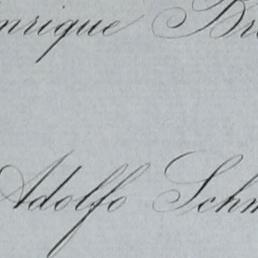 nrique Br
Adolfo Schm